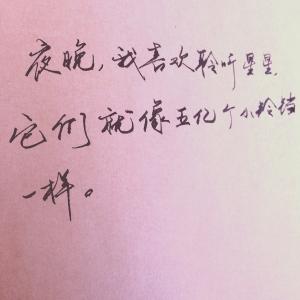 夜晚，我喜欢聆听星星，
它们就像五亿个小铃铛
一样。